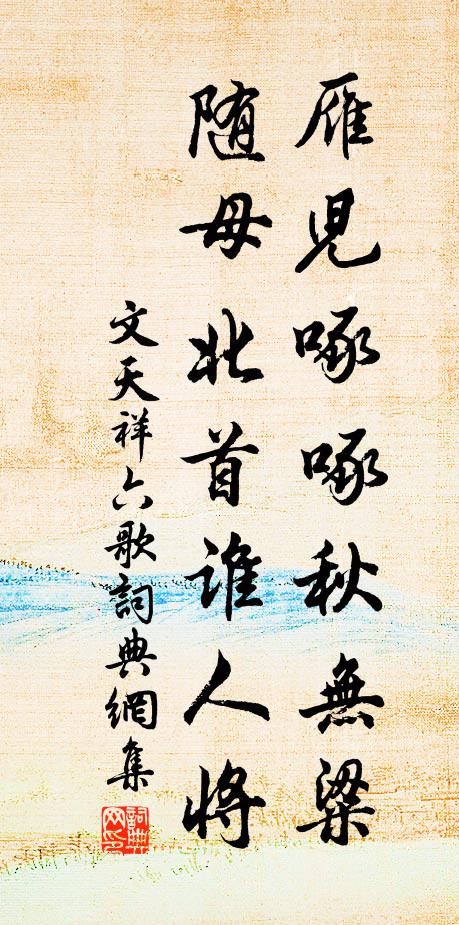 雁兒啄啄秋無粱
随母北首誰人將
文天祥六歌詞典網集
詞典网印